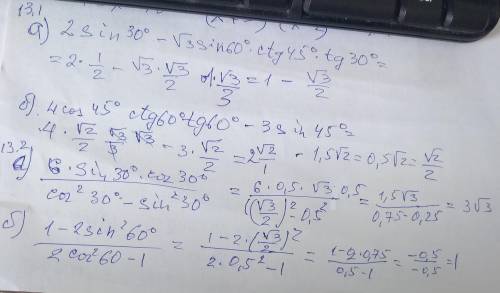 13.1
а) 2 sin 30° - √3 sin 60° · ctg 45° · tg 30° =
= 2 · 1/2 - √3 · √3/2 · √3/3 = 1 - √3/2
б) 4 cos 45° ctg 60° tg 60° - 3 sin 45° =
4 · √2/2 · √3/3 √3 - 3 · √2/2 = 2√2/1 - 1,5√2 = 0,5√2 = √2/2
13.2
а) 6 · sin 30° · cos 30° / cos² 30° - sin² 30° = 6 · 0,5 · √3 · 0,5 / (√3/2)² - 0,5² = 1,5√3 / 0,75 - 0,25 = 3√3
б) 1 - 2 sin² 60° / 2 cos² 60 - 1 = 1 - 2 · (√3/2)² / 2 · 0,5² - 1 = 1 - 2 · 0,75 / 0,5 - 1 = -0,5 / -0,5 = 1